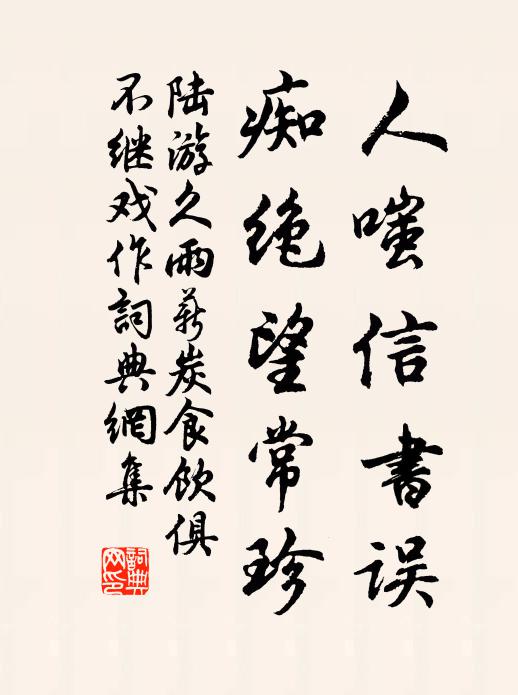 人嗤信书误
痴绝望常珍
陆游久雨薪炭食饮俱
不继戏作词典網集
詞典网印